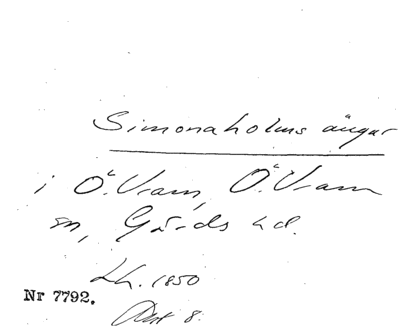 Simonaholms ängar
i Ö. Vram, Ö. Vram
sn, Gärds hd.
Lh. 1850
Nr 7792.
Akt 8.